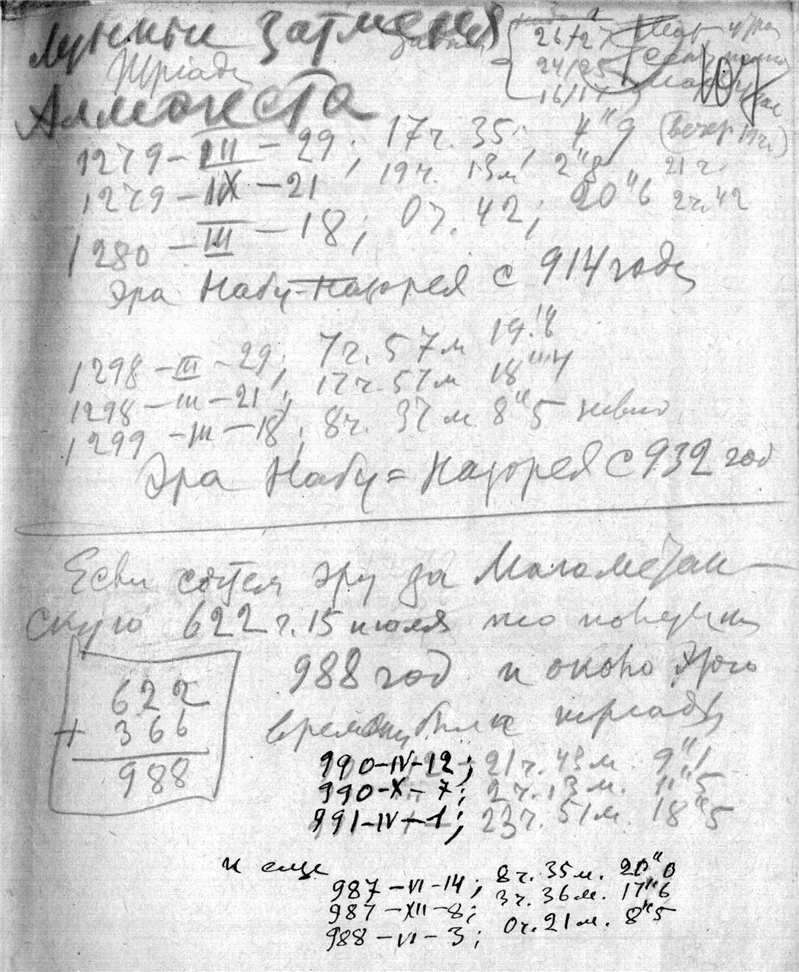 Лунные затмения
Триады
Алмагеста
26/27
24/25
16/17
107
1279-III-29; 17ч. 35; 4"9 (вечер 19ч.)
1279-IX-21; 19ч. 13м 2"8 21ч.
1280-III-18; 0ч. 42; 20"6 2ч. 42
Эра Набу-Назорея с 914 году
1298-III-29; 7ч. 57м 19"8
1298-III-21; 17ч. 57м 18"4
1299-III-18; 8ч. 37м 8"5
Эра Набу=Назорея с 932 год
Если сочтем эру за Магометан-
скую 622 г. 15 июля то получим
988 год и около этого
времени были триады
622
+ 366
988
990-IV-12; 21ч. 43м 9"1
990-X-7; 2ч. 13м. 11"5
991-IV-1; 23ч. 51м. 18"5
и еще
987-VI-14; 8ч. 35м. 20"0
987-XII-8; 3ч. 36м. 17"6
988-VI-3; 0ч. 21м. 8"5